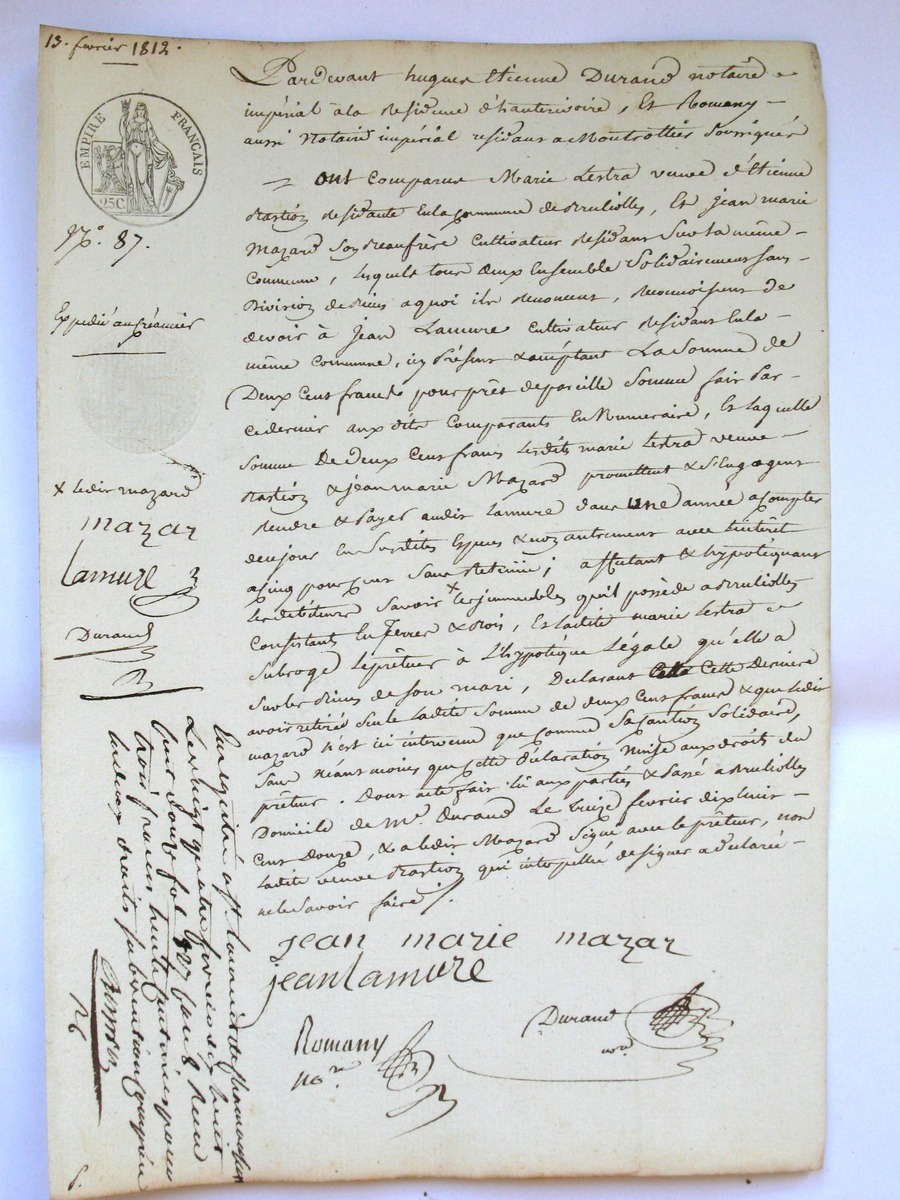 13. fevrier 1812.
EMPIRE FRANÇAIS
25C
N.° 87.
Expedié au créancier
x ledit mazard
mazar
Lamure
Durand
Pardevant hugues Etienne Durand notaire
impérial à la Residence d'hauterivoire, Et Romany
aussi Notaire impérial residant a Montrottier soussignés
Ont Comparu Marie Lestra veuve d'Etienne
residante En la Commune de Brulliolles, Et jean marie
Mazard Son Beaufrère Cultivateur Residant Sur la même
Commune, lesquels tous deux Ensemble Solidairement Sans
Division de Biens a quoi ils Renoncent, Reconnoissent
devoir à Jean Lamure Cultivateur Residant En la
même Commune, ici Présent & acceptant La Somme de
Deux Cent francs pour prêt de pareille Somme fait Par
ce dernier aux dits Comparants En Numeraire, Et laquelle
Somme De deux Cent francs lesdits marie Lestra veuve
& jean marie Mazard promettent & S'Engagent
Rendre & Payer audit Lamure dans une année a Compter
de ce jour En Susdites Espèces & non autrement avec L'intérêt
a Cinq pour Cent Sans Retenue; affectant & hypotéquant
les debiteurs Savoir x les immeubles qu'il possède a Brulliolles
Consistants En Terres & Bois, Et ladite marie Lestra
Subroge Le prêteur à L'hypotèque Légale qu'elle a
Sur les Biens de Son mari, Declarant Cette Dernière
avoir retiré Seule ladite Somme de deux Cent francs & que ledit
mazard n'est ici intervenu que comme Sa Caution Solidaire,
Sans néantmoins que cette déclaration Nuise aux droits du
prêteur. Dont acte fait lû aux parties & Passé a Brulliolles
Domicile de M.e Durand Le treize fevrier dix huit
Cent Douze, & a ledit Mazard Signé avec le prêteur, non
ladite veuve qui interpellée de signer a declaré
ne le Savoir faire
jean marie mazar
jean lamure
Romany
No.re
Durand
no.re
Enregistré à St Laurent de Chamousset
Le vingt quatre fevrier dix huit
Cent Douze fol
trois francs trente centimes pour
les deux droits subvention comprise